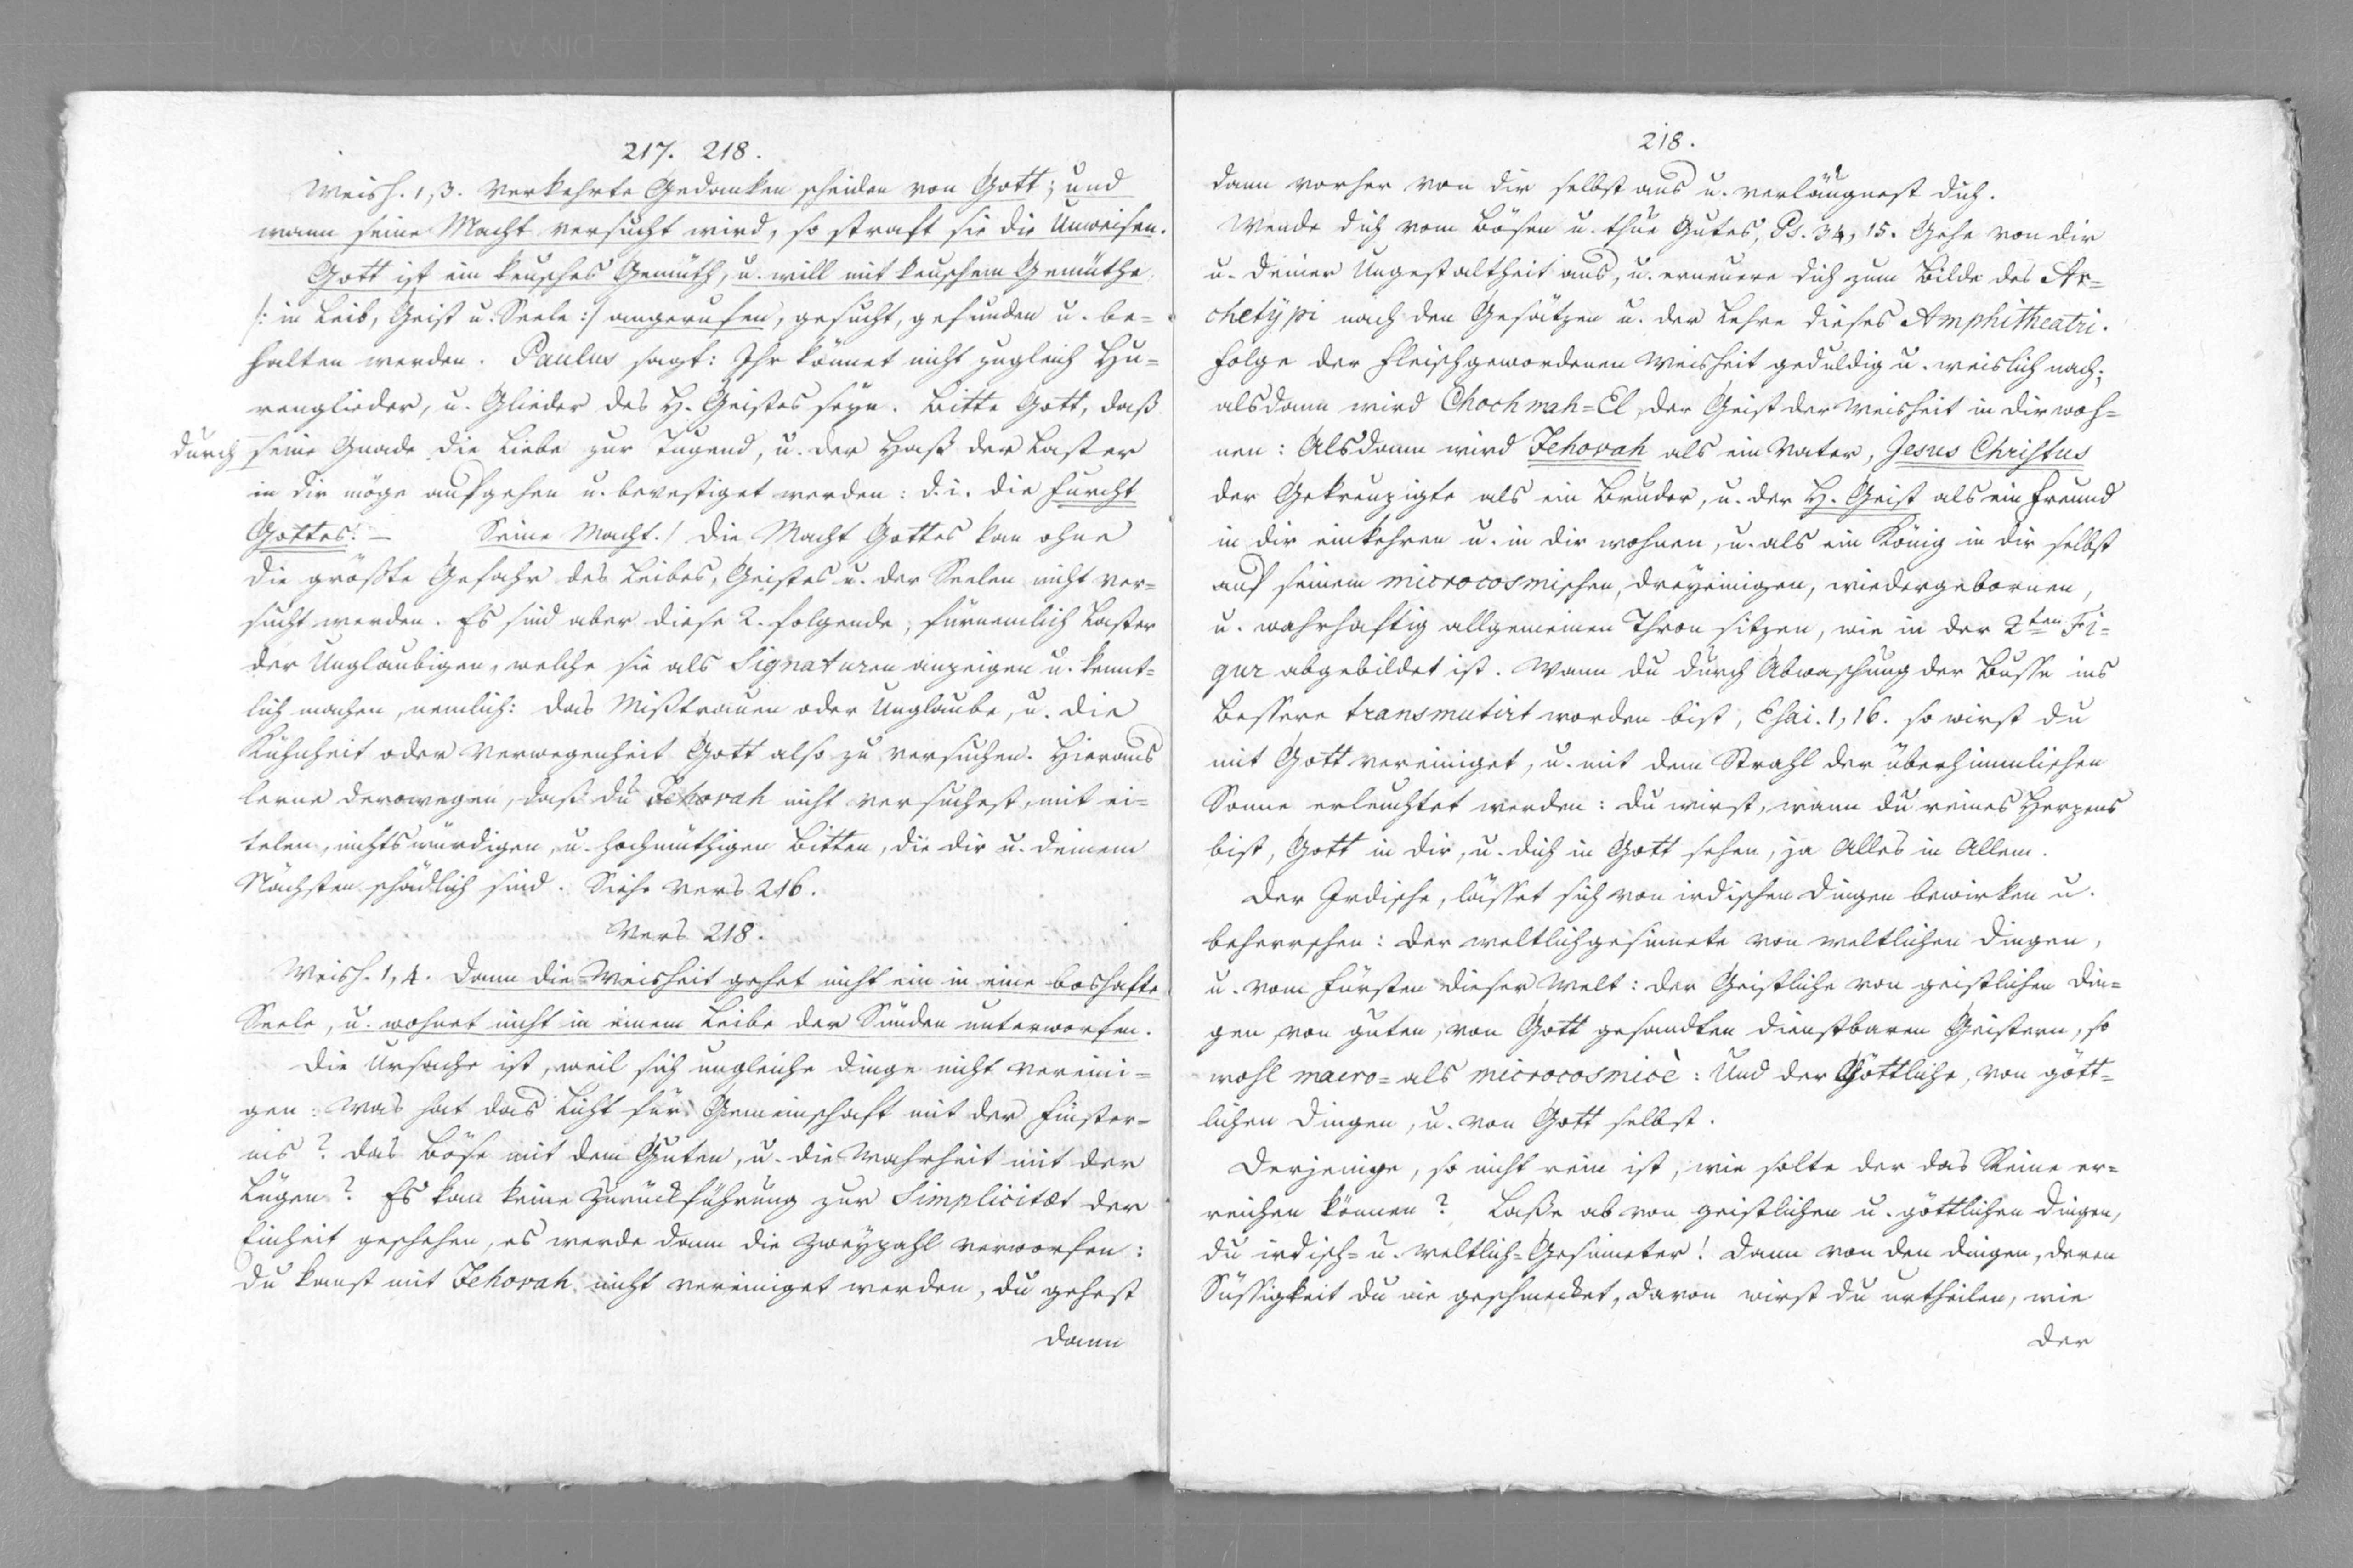 217. 218.
Weish. 1, 3. Verkehrte Gedanken scheiden von Gott; und
wann seine Macht versucht wird, so straft sie die Unweisen.
Gott ist ein keusches Gemüth, u. will mit keuschem Gemüthe
/: in Leib, Geist u. Seele :/ angerufen, gesucht, gefunden u. be=
halten werden. Paulus sagt: Ihr könnet nicht zugleich Hu=
renglieder, u. Glieder des H. Geistes seyn. Bitte Gott, daß
durch seine Gnade die Liebe zur Tugend, u. der Haß der Laster
in dir möge aufgehen u. bevestiget werden: d. i. die Furcht
Gottes! — Seine Macht./ Die Macht Gottes kan ohne
die größte Gefahr des Leibes, Geistes u. der Seelen nicht ver=
sucht werden. Es sind aber diese 2. folgende, fürnemlich Laster
der Unglaubigen, welche sie als Signaturen anzeigen u. kennt=
lich machen, nemlich: das Mißtrauen oder Unglaube, u. die
Kühnheit oder Verwegenheit Gott also zu versuchen. Hieraus
lerne derowegen, daß du Jehovah nicht versuchest, mit ei=
telen, nichtswürdigen, u. hochmüthigen Bitten, die dir u. deinem
Nächsten schädlich sind. Siehe Vers 216.
Vers 218.
Weish. 1, 4. Dann die Weisheit gehet nicht ein in eine boshafte
Seele, u. wohnet nicht in einem Leibe der Sünden unterworfen.
Die Ursache ist, weil sich ungleiche Dinge nicht vereini=
gen: Was hat das Licht für Gemeinschaft mit der Finster=
nis? das Böse mit dem Guten, u. die Wahrheit mit der
Lügen? Es kan keine Zurückführung zur Simplicitæt der
Einheit geschehen, es werde dann die Zweyzahl verworfen:
Du kanst mit Jehovah nicht vereiniget werden, du gehest
dann
218.
dann vorher von dir selbst aus u. verläugnest dich.
Wende dich vom Bösen u. thue Gutes, Ps. 34, 15. Gehe von dir
u. deiner Ungestaltheit aus, u. erneuere dich zum Bilde des Ar=
chetypi nach den Gesätzen u. der Lehre dieses Amphitheatri.
Folge der Fleischgewordenen Weisheit geduldig u. weislich nach;
alsdann wird Chochmah=El, der Geist der Weisheit in dir woh=
nen: Alsdann wird Jehovah als ein Vater, Jesus Christus
der Gekreuzigte als ein Bruder, u. der H. Geist als ein Freund
in dir einkehren u. in dir wohnen, u. als ein König in dir selbst
auf seinem microcosmischen, dreyeinigen, wiedergebornen,
u. wahrhaftig allgemeinen Thron sitzen, wie in der 2ten Fi=
gur abgebildet ist. Wann du durch Abwaschung der Busse ins
Bessere transmutirt worden bist, Esai. 1, 16. so wirst du
mit Gott vereiniget, u. mit dem Strahl der überhimmlischen
Sonne erleuchtet werden: du wirst, wann du reines Herzens
bist, Gott in dir, u. dich in Gott sehen, ja Alles in Allem.
Der Irdische, lässet sich von irdischen Dingen bewirken u.
beherrschen: der weltlichgesinnete von weltlichen Dingen,
u. vom Fürsten dieser Welt: der Geistliche von geistlichen Din=
gen, von guten, von Gott gesandten dienstbaren Geistern, so
wohl macro= als microcosmicè: Und der Göttliche, von gött=
lichen Dingen, u. von Gott selbst.
Derjenige, so nicht rein ist, wie solte der das Reine er=
reichen können? Laße ab von geistlichen u. göttlichen Dingen,
du irdisch= u. weltlich=Gesinneter! Dann von den Dingen, deren
Süssigkeit du nie geschmecket, davon wirst du urtheilen, wie
der